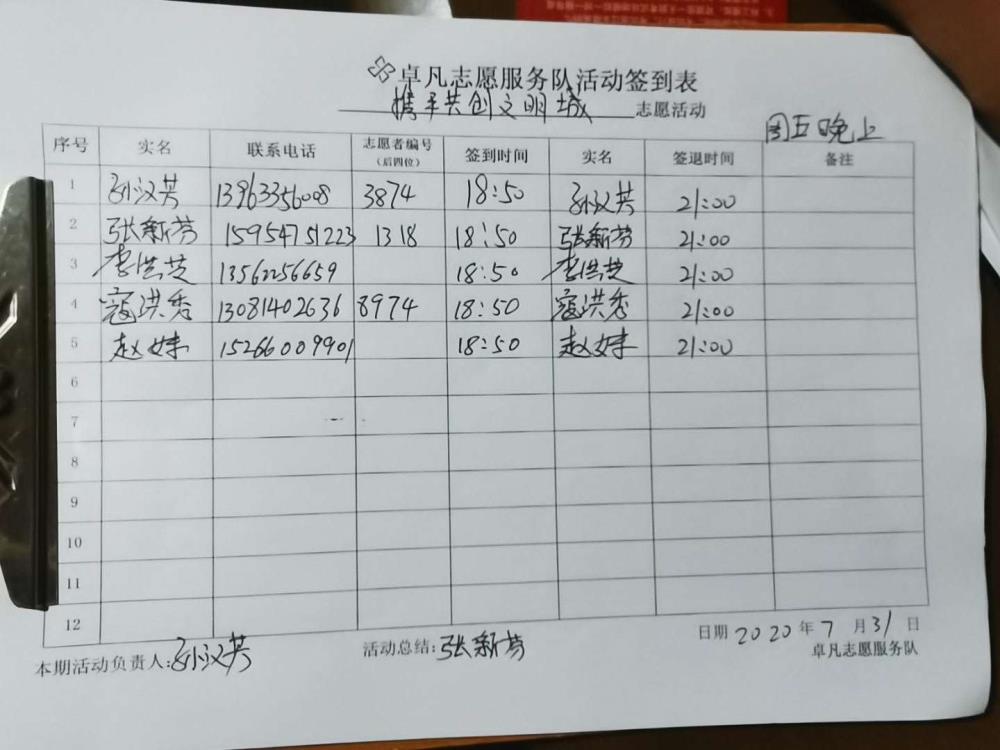 卓凡志愿服务队活动签到表
携手共创文明城 志愿活动
周五晚上
序号 实名 联系电话 志愿者编号(后四位) 签到时间 实名 签退时间 备注
1 孙汉芹 13963356008 3874 18:50 孙汉芹 21:00
2 张新芳 15954751223 1318 18:50 张新芳 21:00
3 李洪芝 13562256659 18:50 李洪芝 21:00
4 寇洪秀 13081402636 8974 18:50 寇洪秀 21:00
5 赵妹 15266009901 18:50 赵妹 21:00
6
7
8
9
10
11
12
本期活动负责人:孙汉芹 活动总结:张新芳 日期 2020 年 7 月 31 日
卓凡志愿服务队